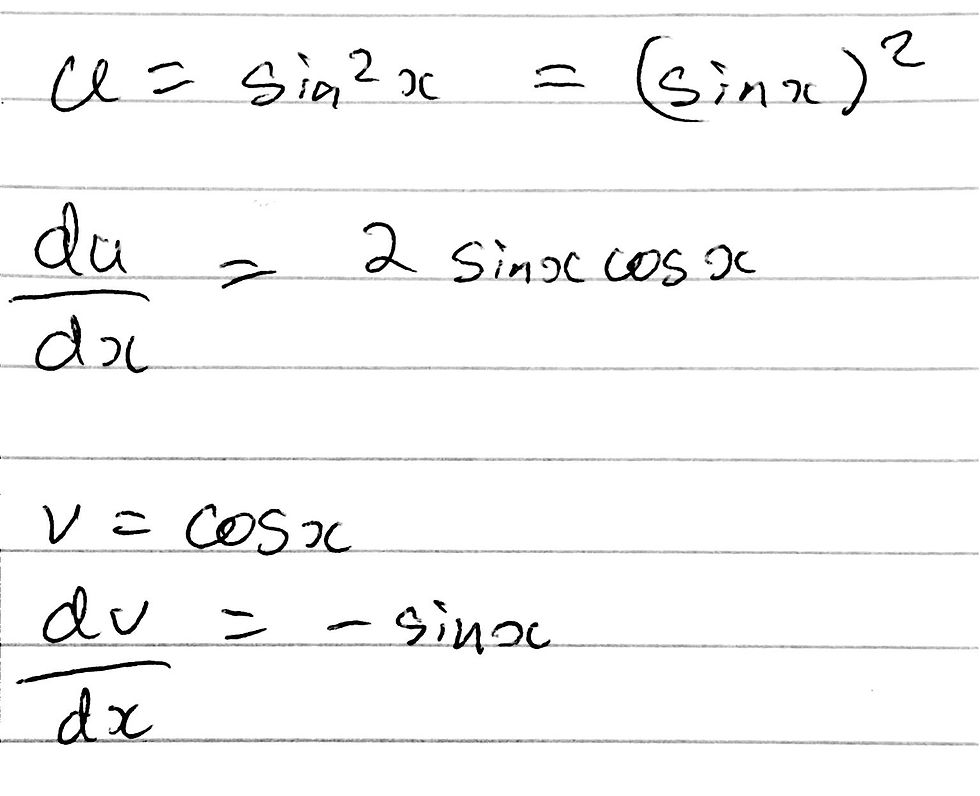 u = sin²x = (sinx)²
du/dx = 2 sinx cosx
v = cosx
dv/dx = -sinx